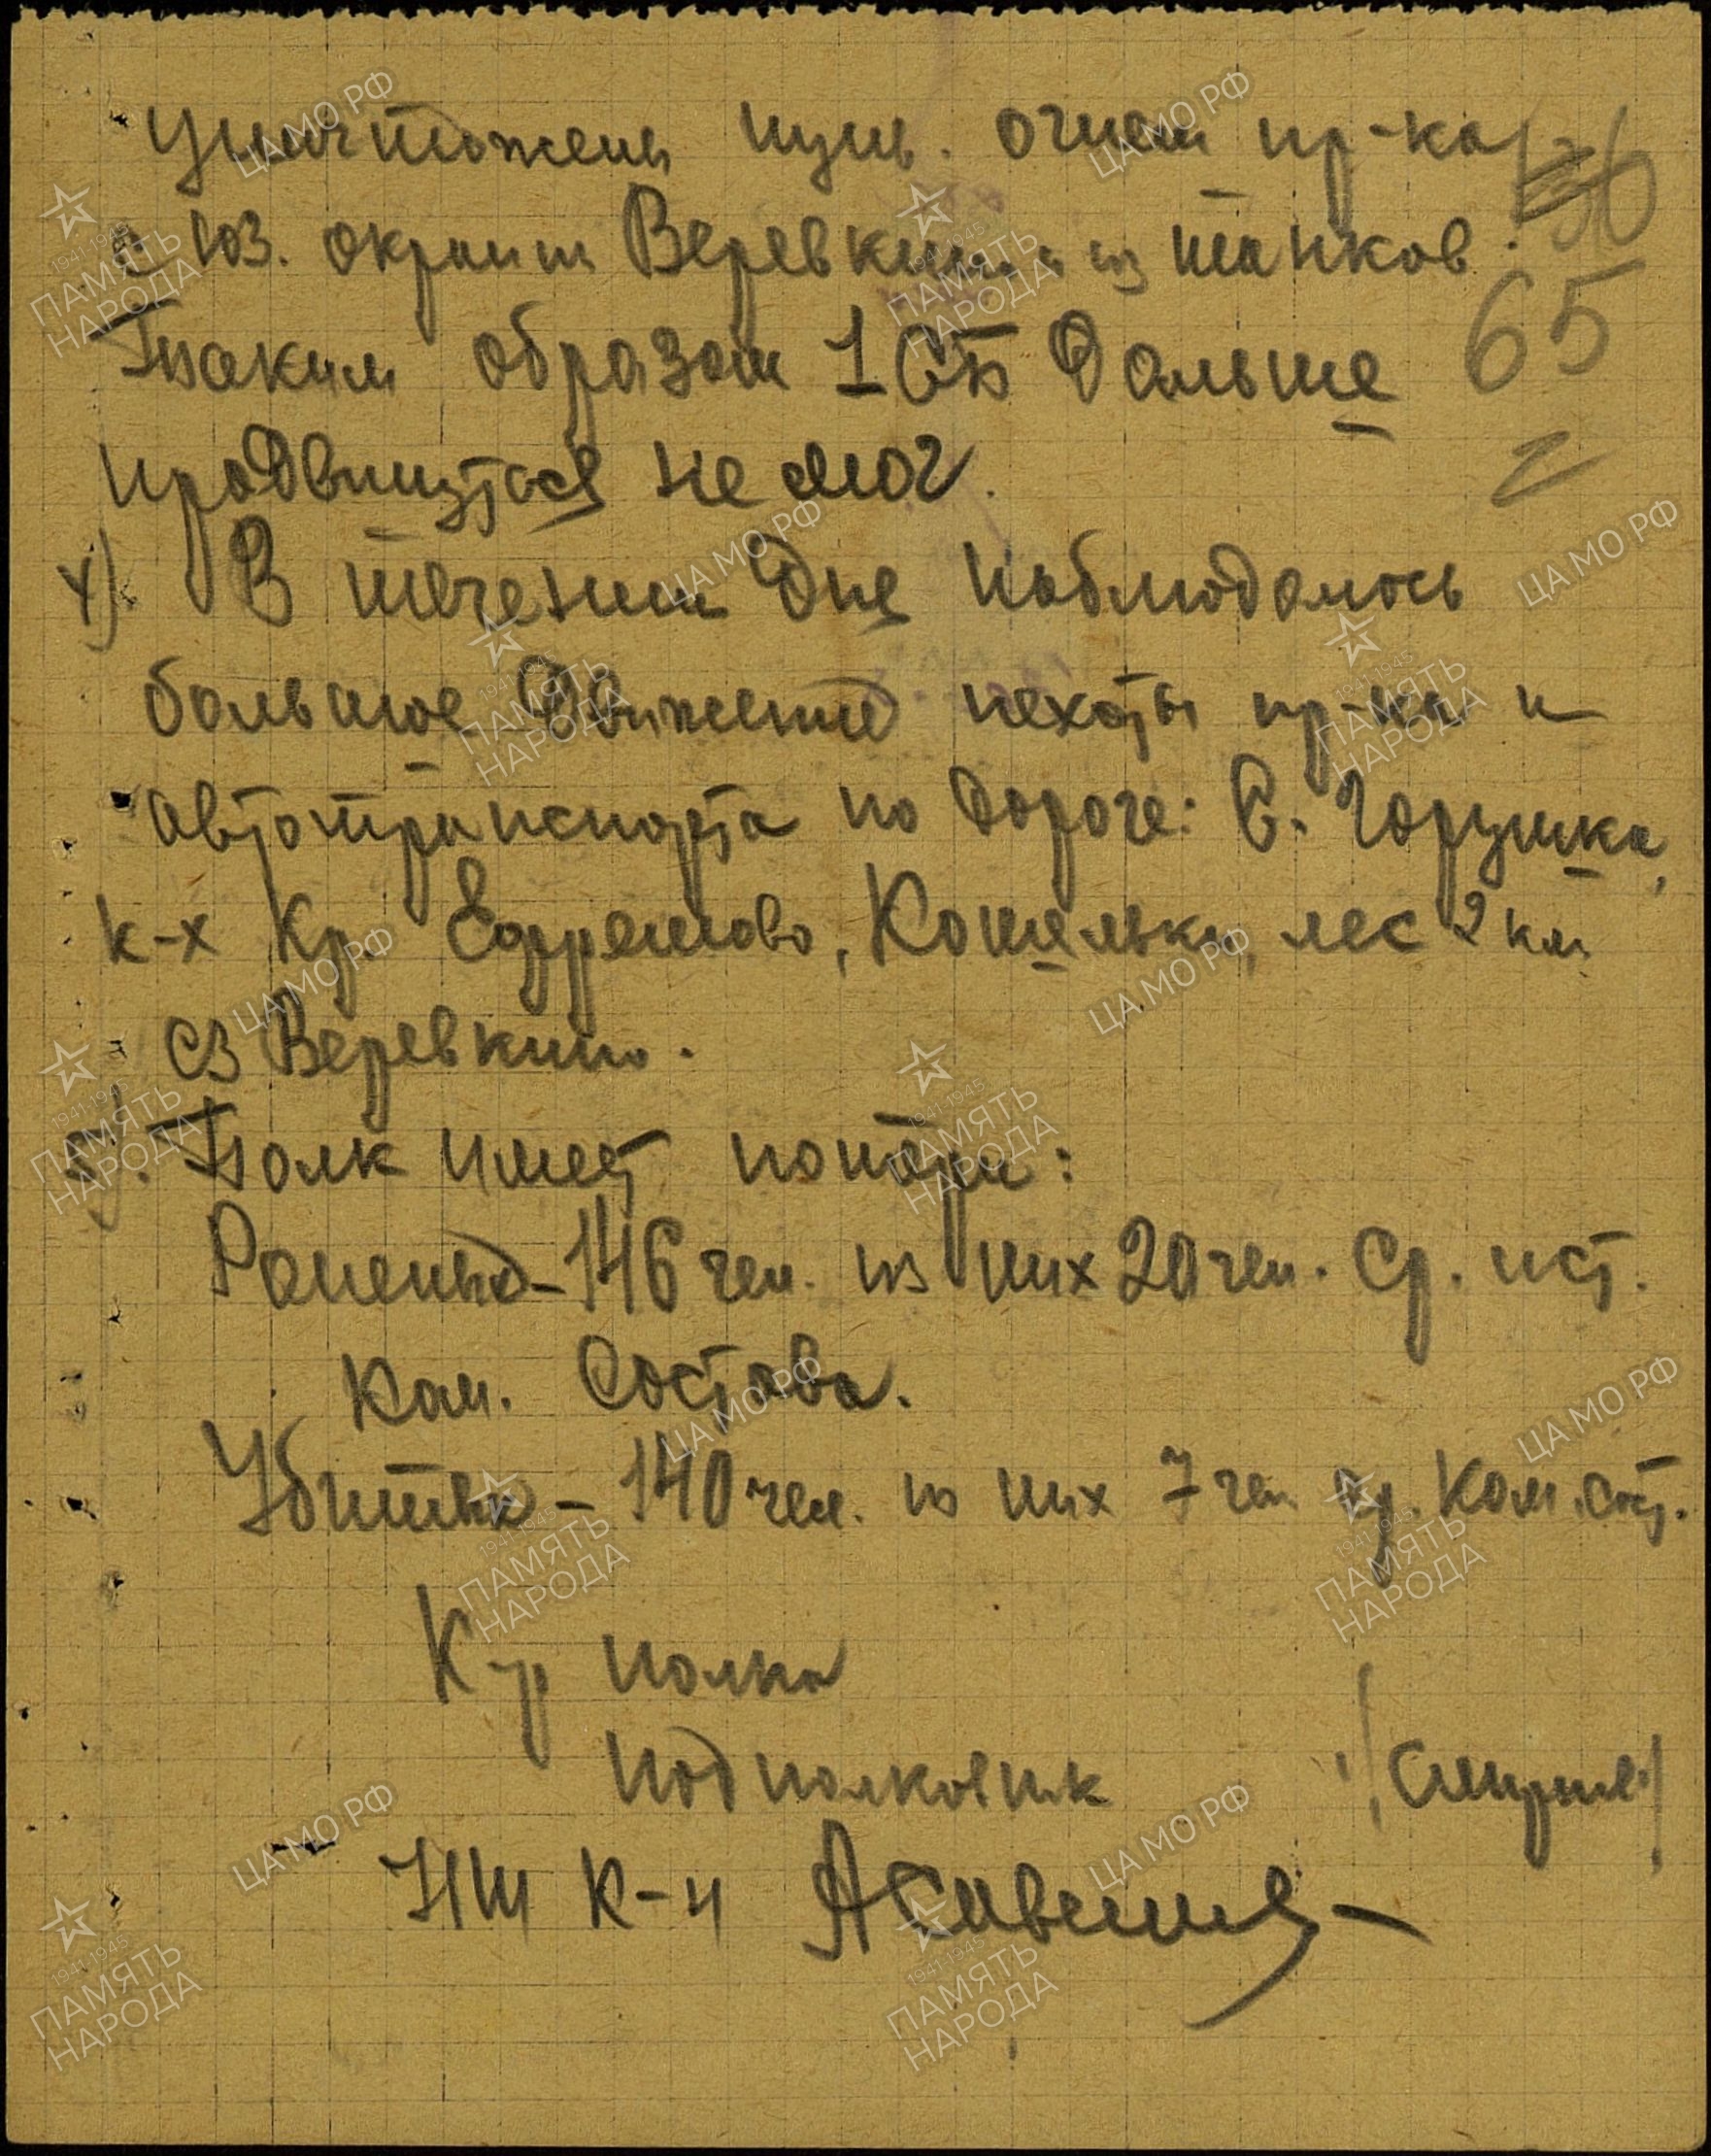 уничтожены пул. огнем пр-ка
с юз. окраины Веревкино и из танков.
65
Таким образом 1 СБ дальше
продвинутся не смог.
4) В течении дня наблюдалось
большое движение пехоты пр-ка и
автотранспорта по дороге: С. Горушка,
к-х Кр. Ефремово, Кошельки, лес 2 км
СЗ Веревкино.
5). Полк имеет потери:
Ранены - 146 чел. из них 20 чел. ср. нст.
ком. состава.
Убиты - 140 чел. из них 7 чел ср. ком. сост.
К-р полка
подполковник /Смирнов/
НШ к-н
ЦА МО РФ
1941-1945
ПАМЯТЬ
НАРОДА